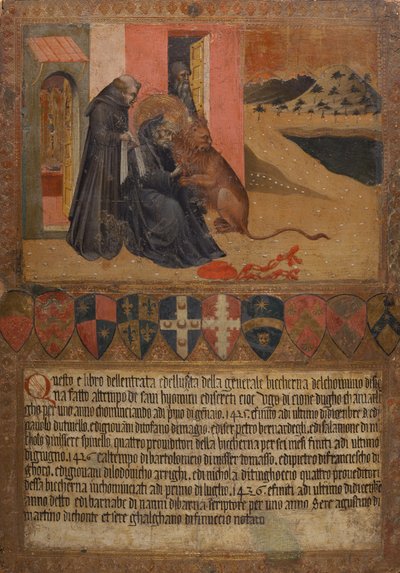 Questo e libro dellentrata edelluscita della generale biccherna delchomuno disie
na fatto altempo de savi huomini ediscreti cioe Vgo di cione
gho per uno anno chominciando adi primo di genaio .1426. efinito adi ultimo didicenbre
edigiovanni di tofano demagio. edi ser petro bernardegli. edi salamone di mi
cholo di misere spinello. quattro proveditori della biccherna per sei mesi finiti adi ultimo
digiugno. 1426 ealtenpo di bartolomeio di misser tomasso. edi pietro di franciescho di
ghoro. edi giovanni di lodovicho arrighi. edi nichola di tinghoccio quattro proveditori
dessa biccherna inchominciati adi primo di luglio .1426. efiniti adi ultimo di dicenbre
anno detto edi barnabe di nanni di barna scriptore per uno anno. Sere agustino di
martino dichonte et sere ghalghano di finuccio notaro